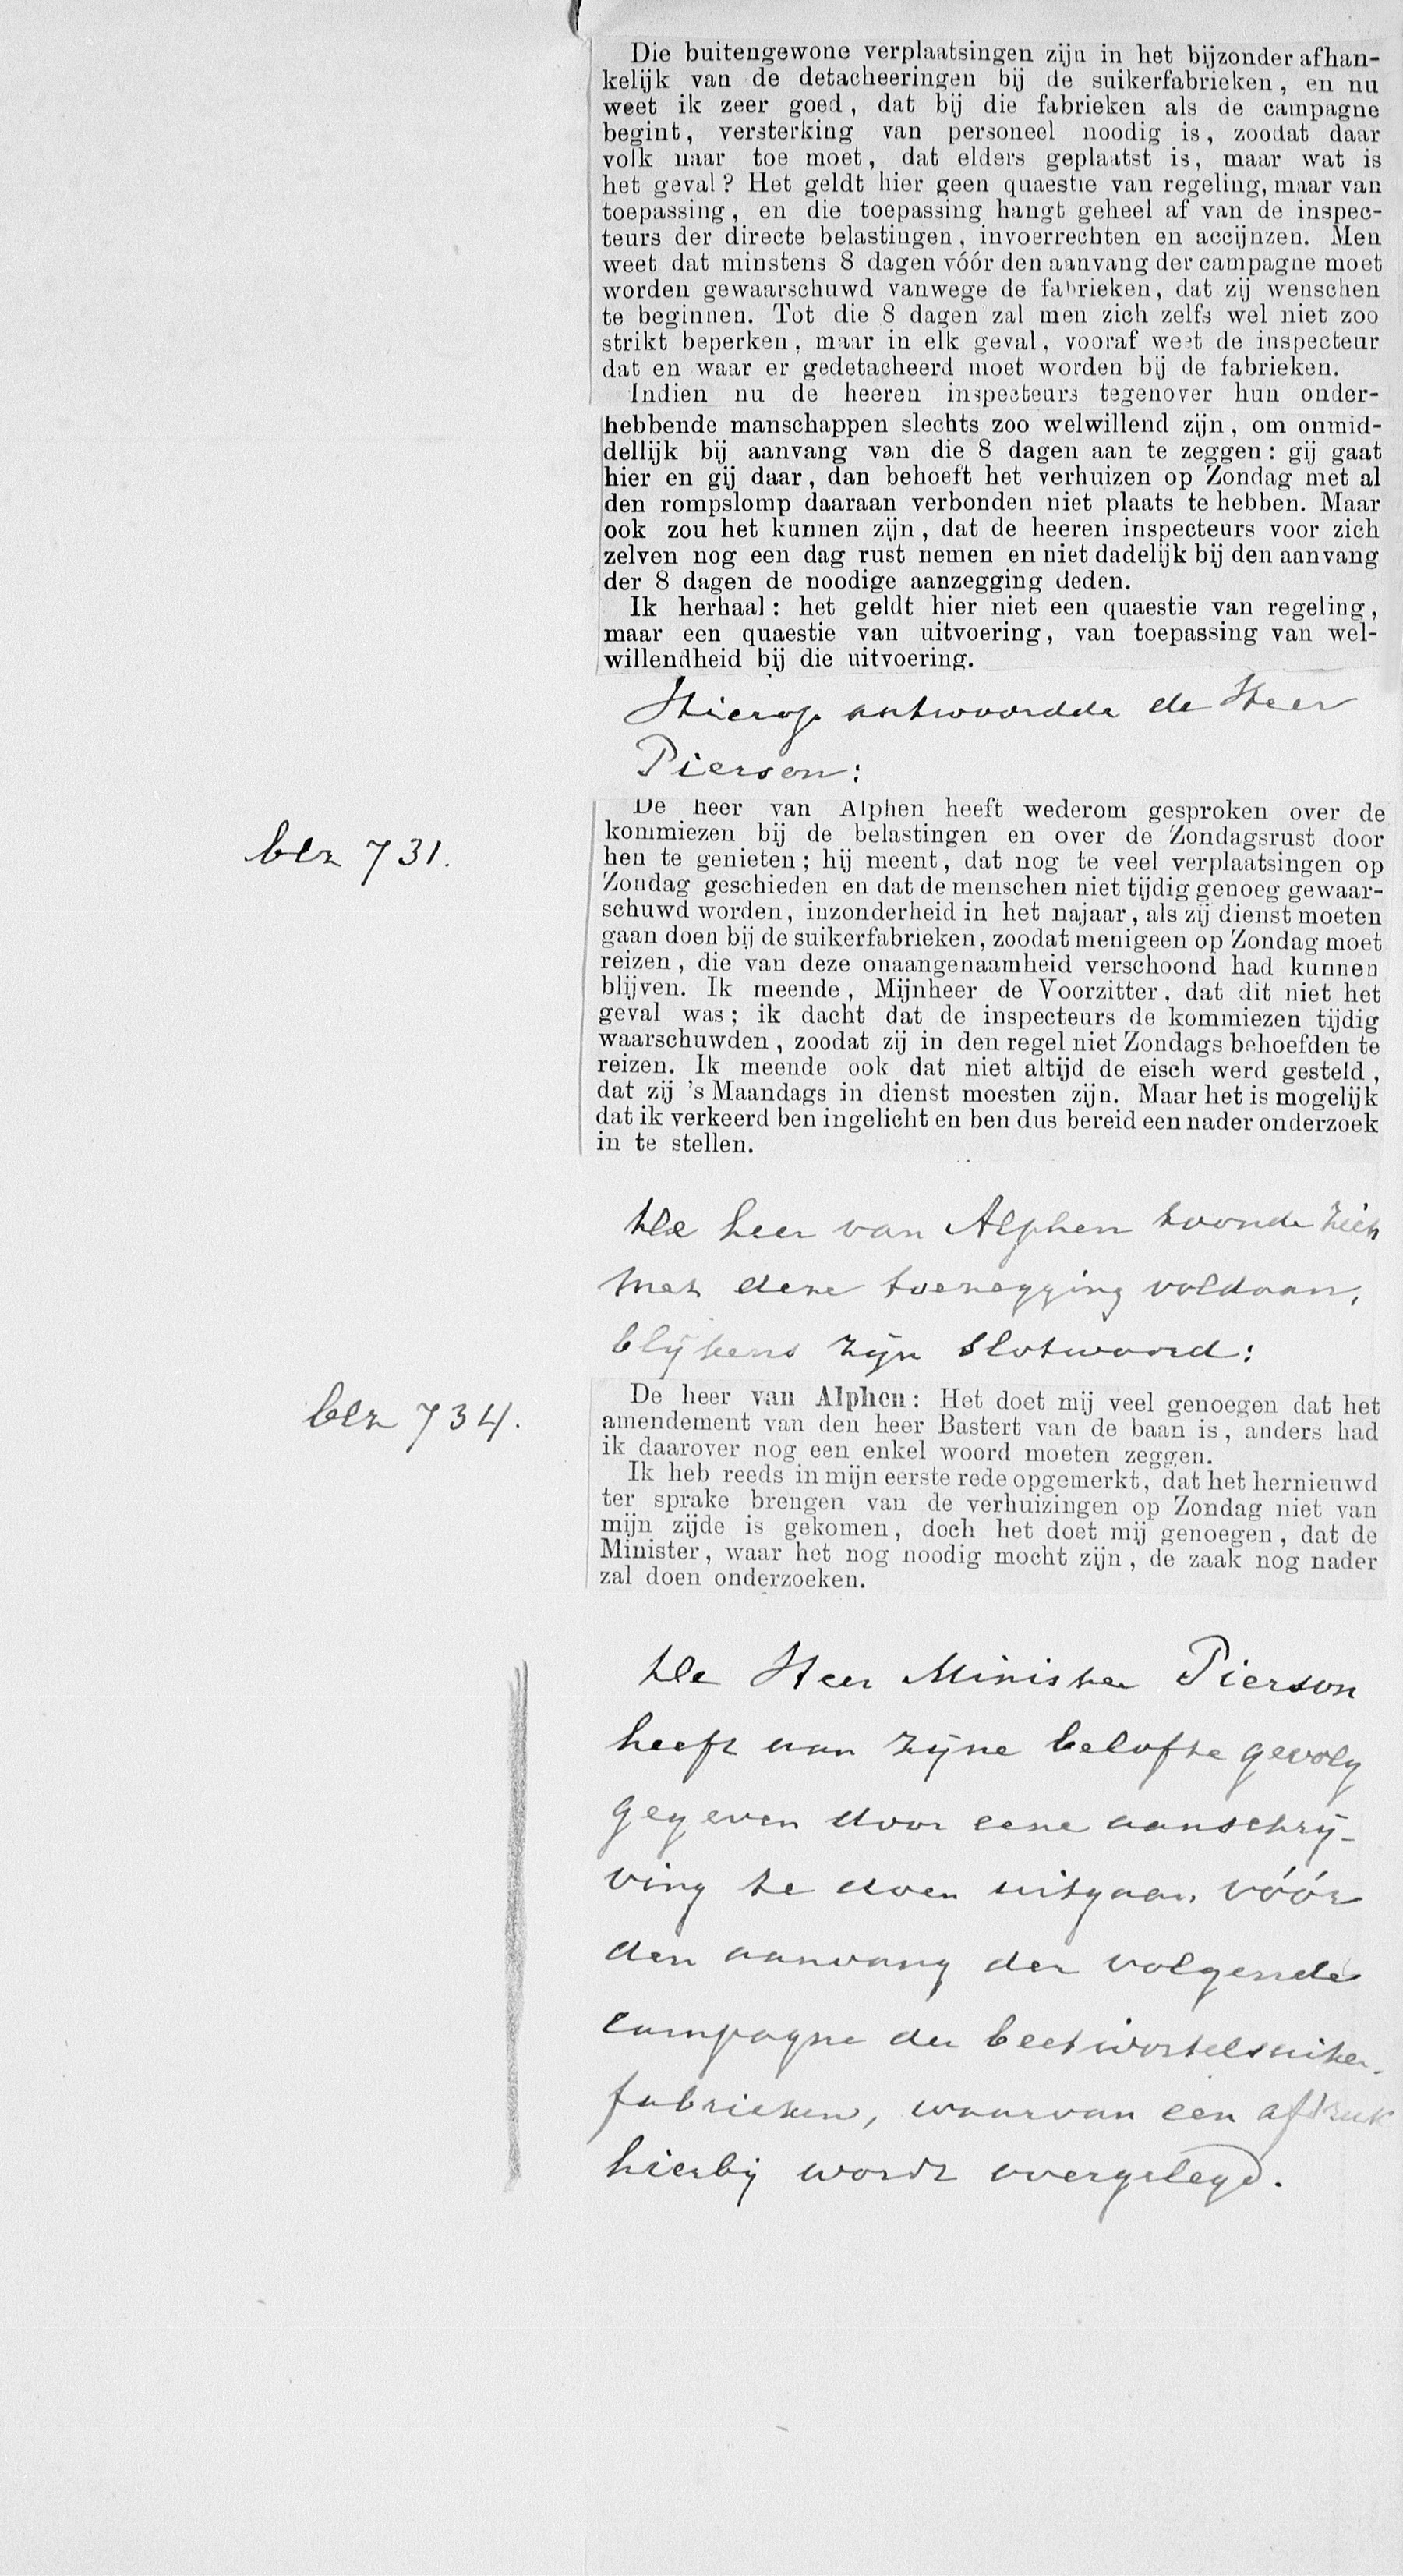 Die buitengewone verplaatsingen zijn in het bijzonder afhan-
kelijk van de detacheeringen bij de suikerfabrieken, en nu
weet ik zeer goed, dat bij die fabrieken als de campagne
begint, versterking van personeel noodig is, zoodat daar
volk naar toe moet, dat elders geplaatst is, maar wat is
het geval? Het geldt hier geen quaestie van regeling, maar van
toepassing, en die toepassing hangt geheel af van de inspec-
teurs der directe belastingen, invoerrechten en accijnzen. Men
weet dat minstens 8 dagen vóór den aanvang der campagne moet
worden gewaarschuwd vanwege de fabrieken, dat zij wenschen
te beginnen. Tot die 8 dagen zal men zich zelfs wel niet zoo
strikt beperken, maar in elk geval, vooraf weet de inspecteur
dat en waar er gedetacheerd moet worden bij de fabrieken.
Indien nu de heeren inspecteurs tegenover hun onder-
hebbende manschappen slechts zoo welwillend zijn, om onmid-
dellijk bij aanvang van die 8 dagen aan te zeggen: gij gaat
hier en gij daar, dan behoeft het verhuizen op Zondag met al
den rompslomp daaraan verbonden niet plaats te hebben. Maar
ook zou het kunnen zijn, dat de heeren inspecteurs voor zich
zelven nog een dag rust nemen en niet dadelijk bij den aanvang
der 8 dagen de noodige aanzegging deden.
Ik herhaal: het geldt hier niet een quaestie van regeling,
maar een quaestie van uitvoering, van toepassing van wel-
willendheid bij die uitvoering.
Hierop antwoordde de Heer
Pierson:
blz 731.
De heer van Alphen heeft wederom gesproken over de
kommiezen bij de belastingen en over de Zondagsrust door
hen te genieten; hij meent, dat nog te veel verplaatsingen op
Zondag geschieden en dat de menschen niet tijdig genoeg gewaar-
schuwd worden, inzonderheid in het najaar, als zij dienst moeten
gaan doen bij de suikerfabrieken, zoodat menigeen op Zondag moet
reizen, die van deze onaangenaamheid verschoond had kunnen
blijven. Ik meende, Mijnheer de Voorzitter, dat dit niet het
geval was; ik dacht dat de inspecteurs de kommiezen tijdig
waarschuwden, zoodat zij in den regel niet Zondags behoefden te
reizen. Ik meende ook dat niet altijd de eisch werd gesteld,
dat zij 's Maandags in dienst moesten zijn. Maar het is mogelijk
dat ik verkeerd ben ingelicht en ben dus bereid een nader onderzoek
in te stellen.
De heer van Alphen toonde zich
met deze toezegging voldaan,
blijkens zijn slotwoord:
blz 734.
De heer van Alphen: Het doet mij veel genoegen dat het
amendement van den heer Bastert van de baan is, anders had
ik daarover nog een enkel woord moeten zeggen.
Ik heb reeds in mijn eerste rede opgemerkt, dat het hernieuwd
ter sprake brengen van de verhuizingen op Zondag niet van
mijn zijde is gekomen, doch het doet mij genoegen, dat de
Minister, waar het nog noodig mocht zijn, de zaak nog nader
zal doen onderzoeken.
De Heer Minister Pierson
heeft aan zijne belofte gevolg
gegeven door eene aanschrij-
ving te doen uitgaan vóór
den aanvang der volgende
campagne der beetwortelsuiker-
fabrieken, waarvan een afdruk
hierbij wordt overgelegd.